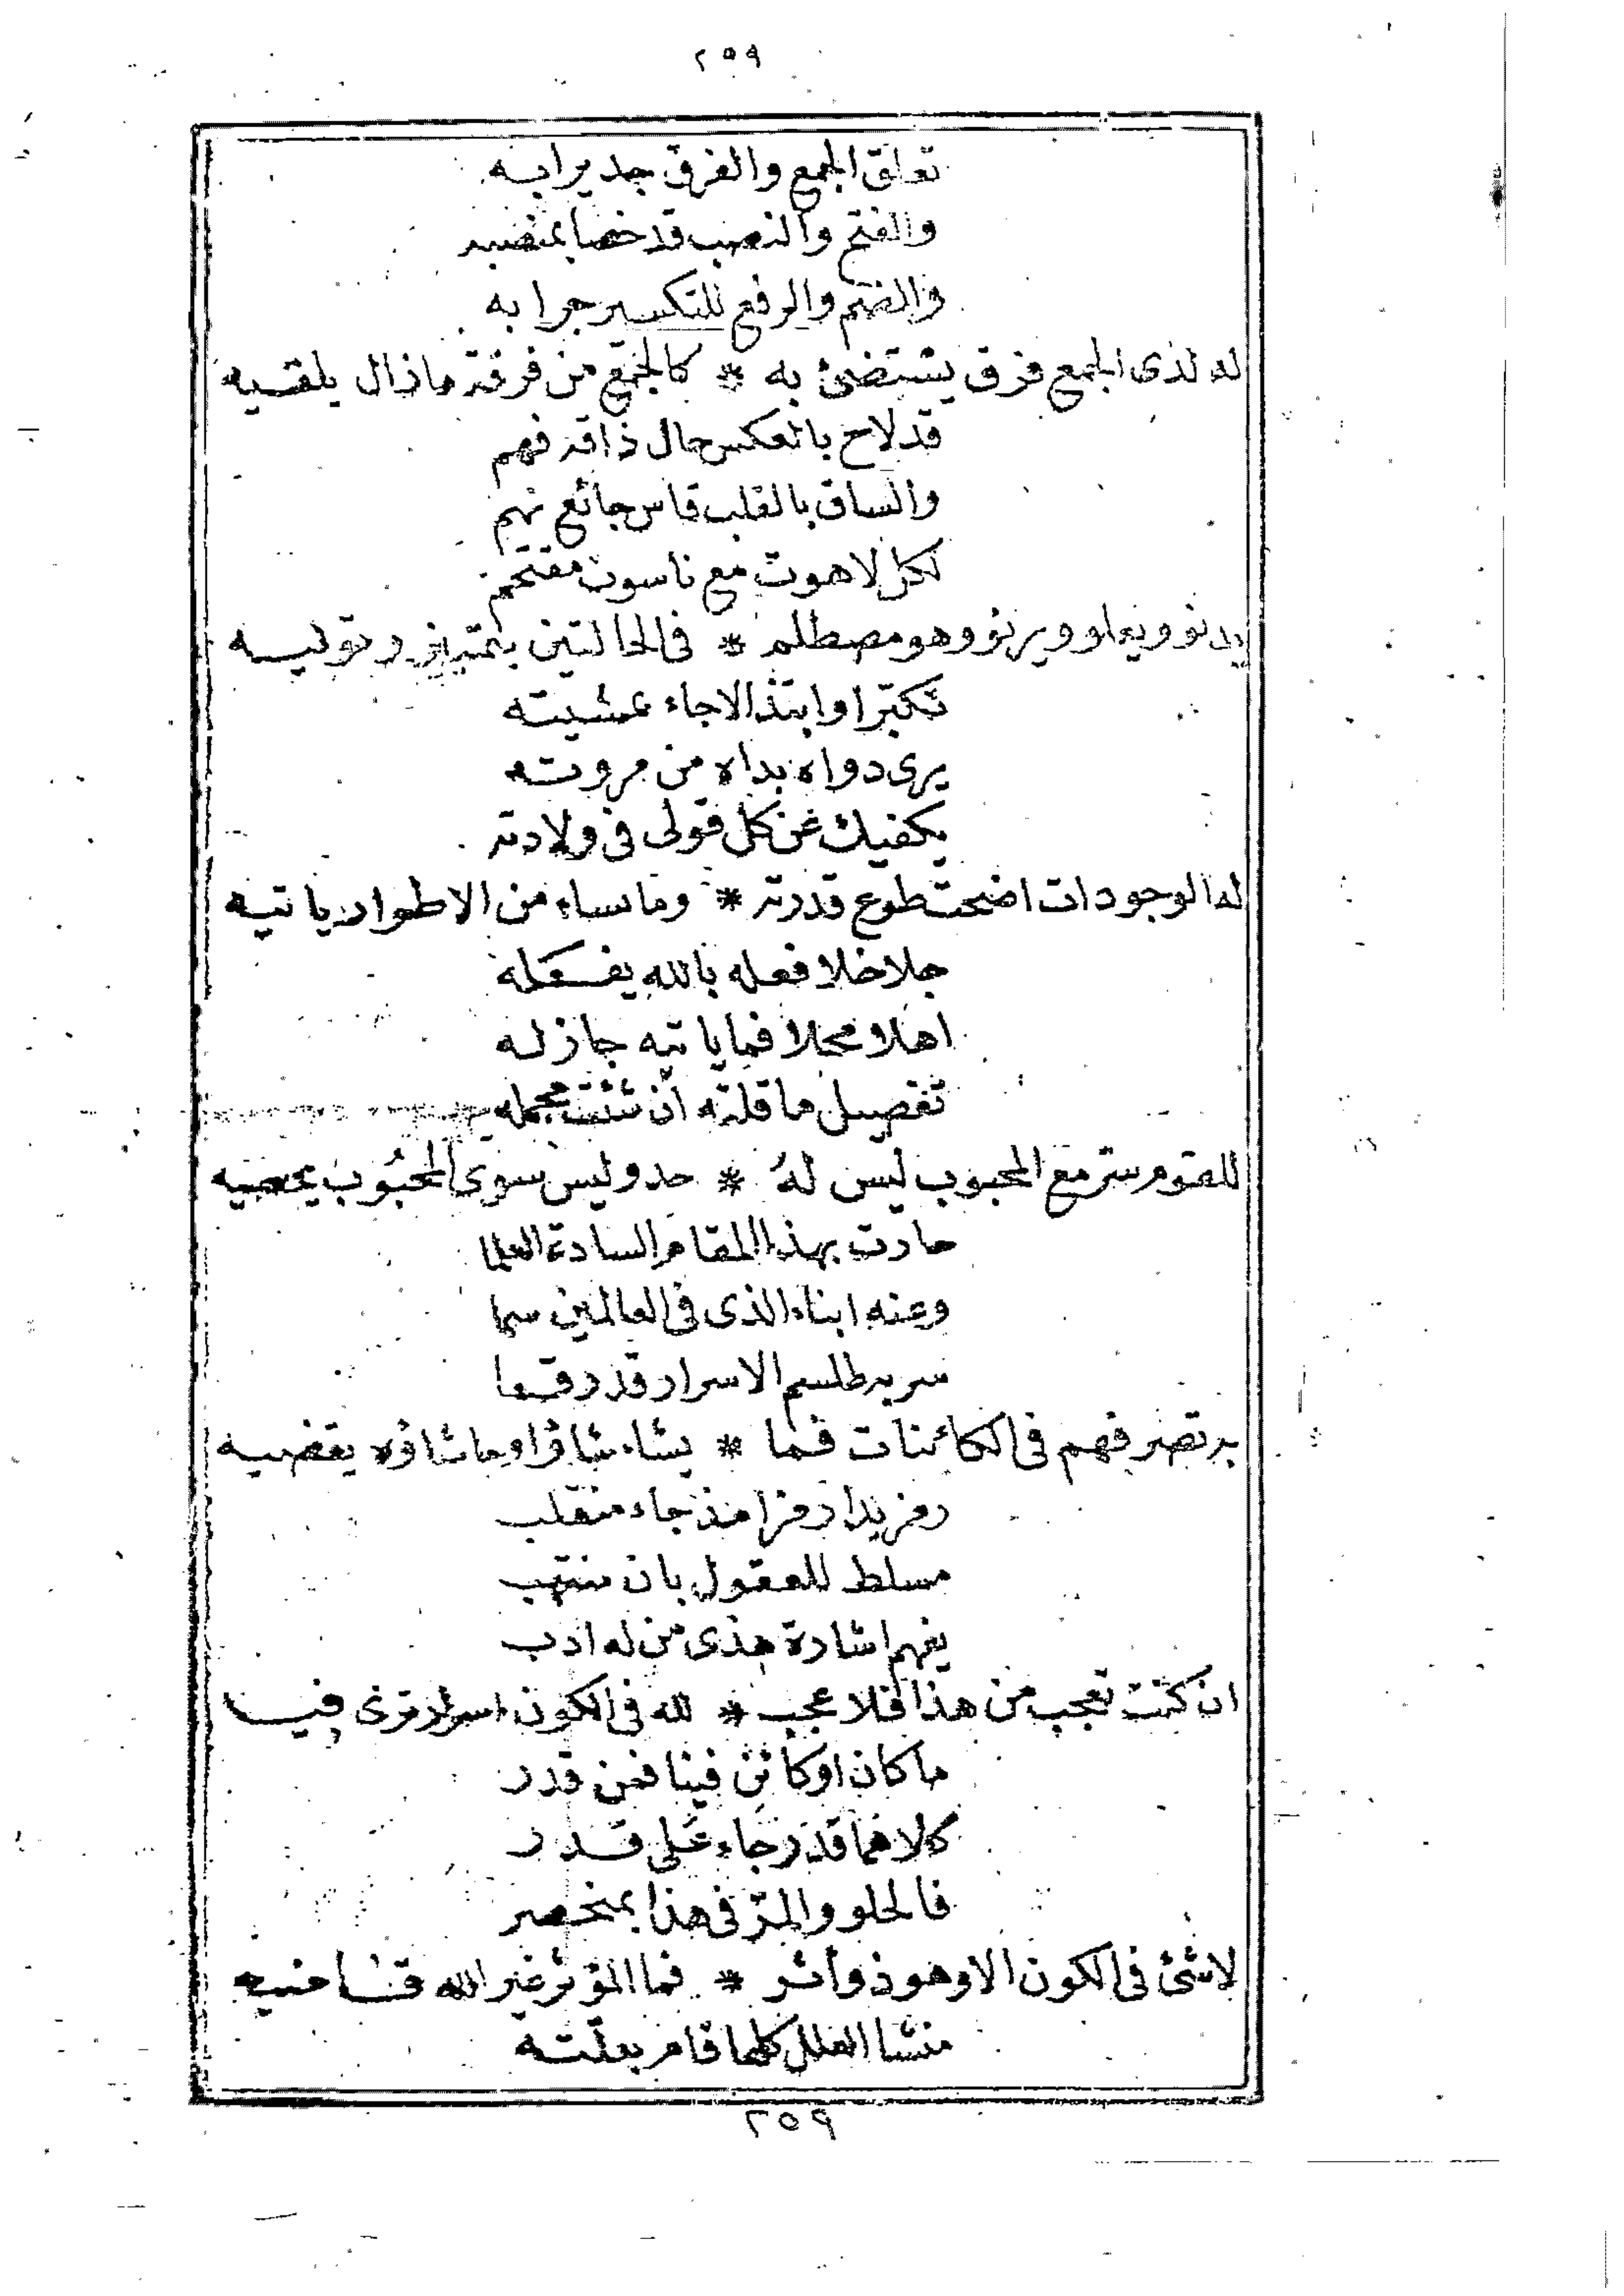 ٢٥٩
تعلق الجمع والفرق جديرا به
والفتح والنصب قد خصا بمنصبه
والضم والرفع للتكسير جرا به
له لذى الجمع فرق يستضئ به * كالجمع من فرقة مازال يلقيه
قد لاح بالعكس حال ذاقه فهم
والساق بالقلب قاس جائع نهم
لكل لاهوت مع ناسوت مقتحم
يدنو ويعلو ويرنو وهو مصطلم * فى الحالتين بتمييز وتوليه
تكبرا وابتذالا جاء بمشيته
يرى دواه بداه من مروته
يكفيك عن كل قولى فى ولادته
له الوجودات اضحت طوع قدرته * وما نساء من الاطوار ياتيه
جلا خلا فعله بالله يفعله
اهلا محلا فما ياتيه جاز له
تفصيل ما قلته ان شئت مجمله
للقوم سر مع المحبوب ليس له * حد وليس سوى المحبوب يحصيه
حارت بهذا المقام السادة العلما
وعنه ابناء الذى فى العالمين سما
سر به طلسم الاسرار قد رقما
به تصرفهم فى الكائنات فما * يشاء شاؤا وما شاؤه يقضيه
رمز بدا رمزا مذ جاء منقلب
مسلط للعقول بان تنتهب
يفهم اشارة هذى من له ادب
ان كنت تعجب من هذا فلا عجب * لله فى الكون اسرار ترى فيه
ما كان او كائن فينا فمن قدر
كلاهما قدر جاء على قدر
فالحلو والمر فى هذا بمنحصر
لا شئ فى الكون الا وهو ذو أثر * فما المؤثر غير الله
منشا العلل كلها قام بعلته
٢٥٩